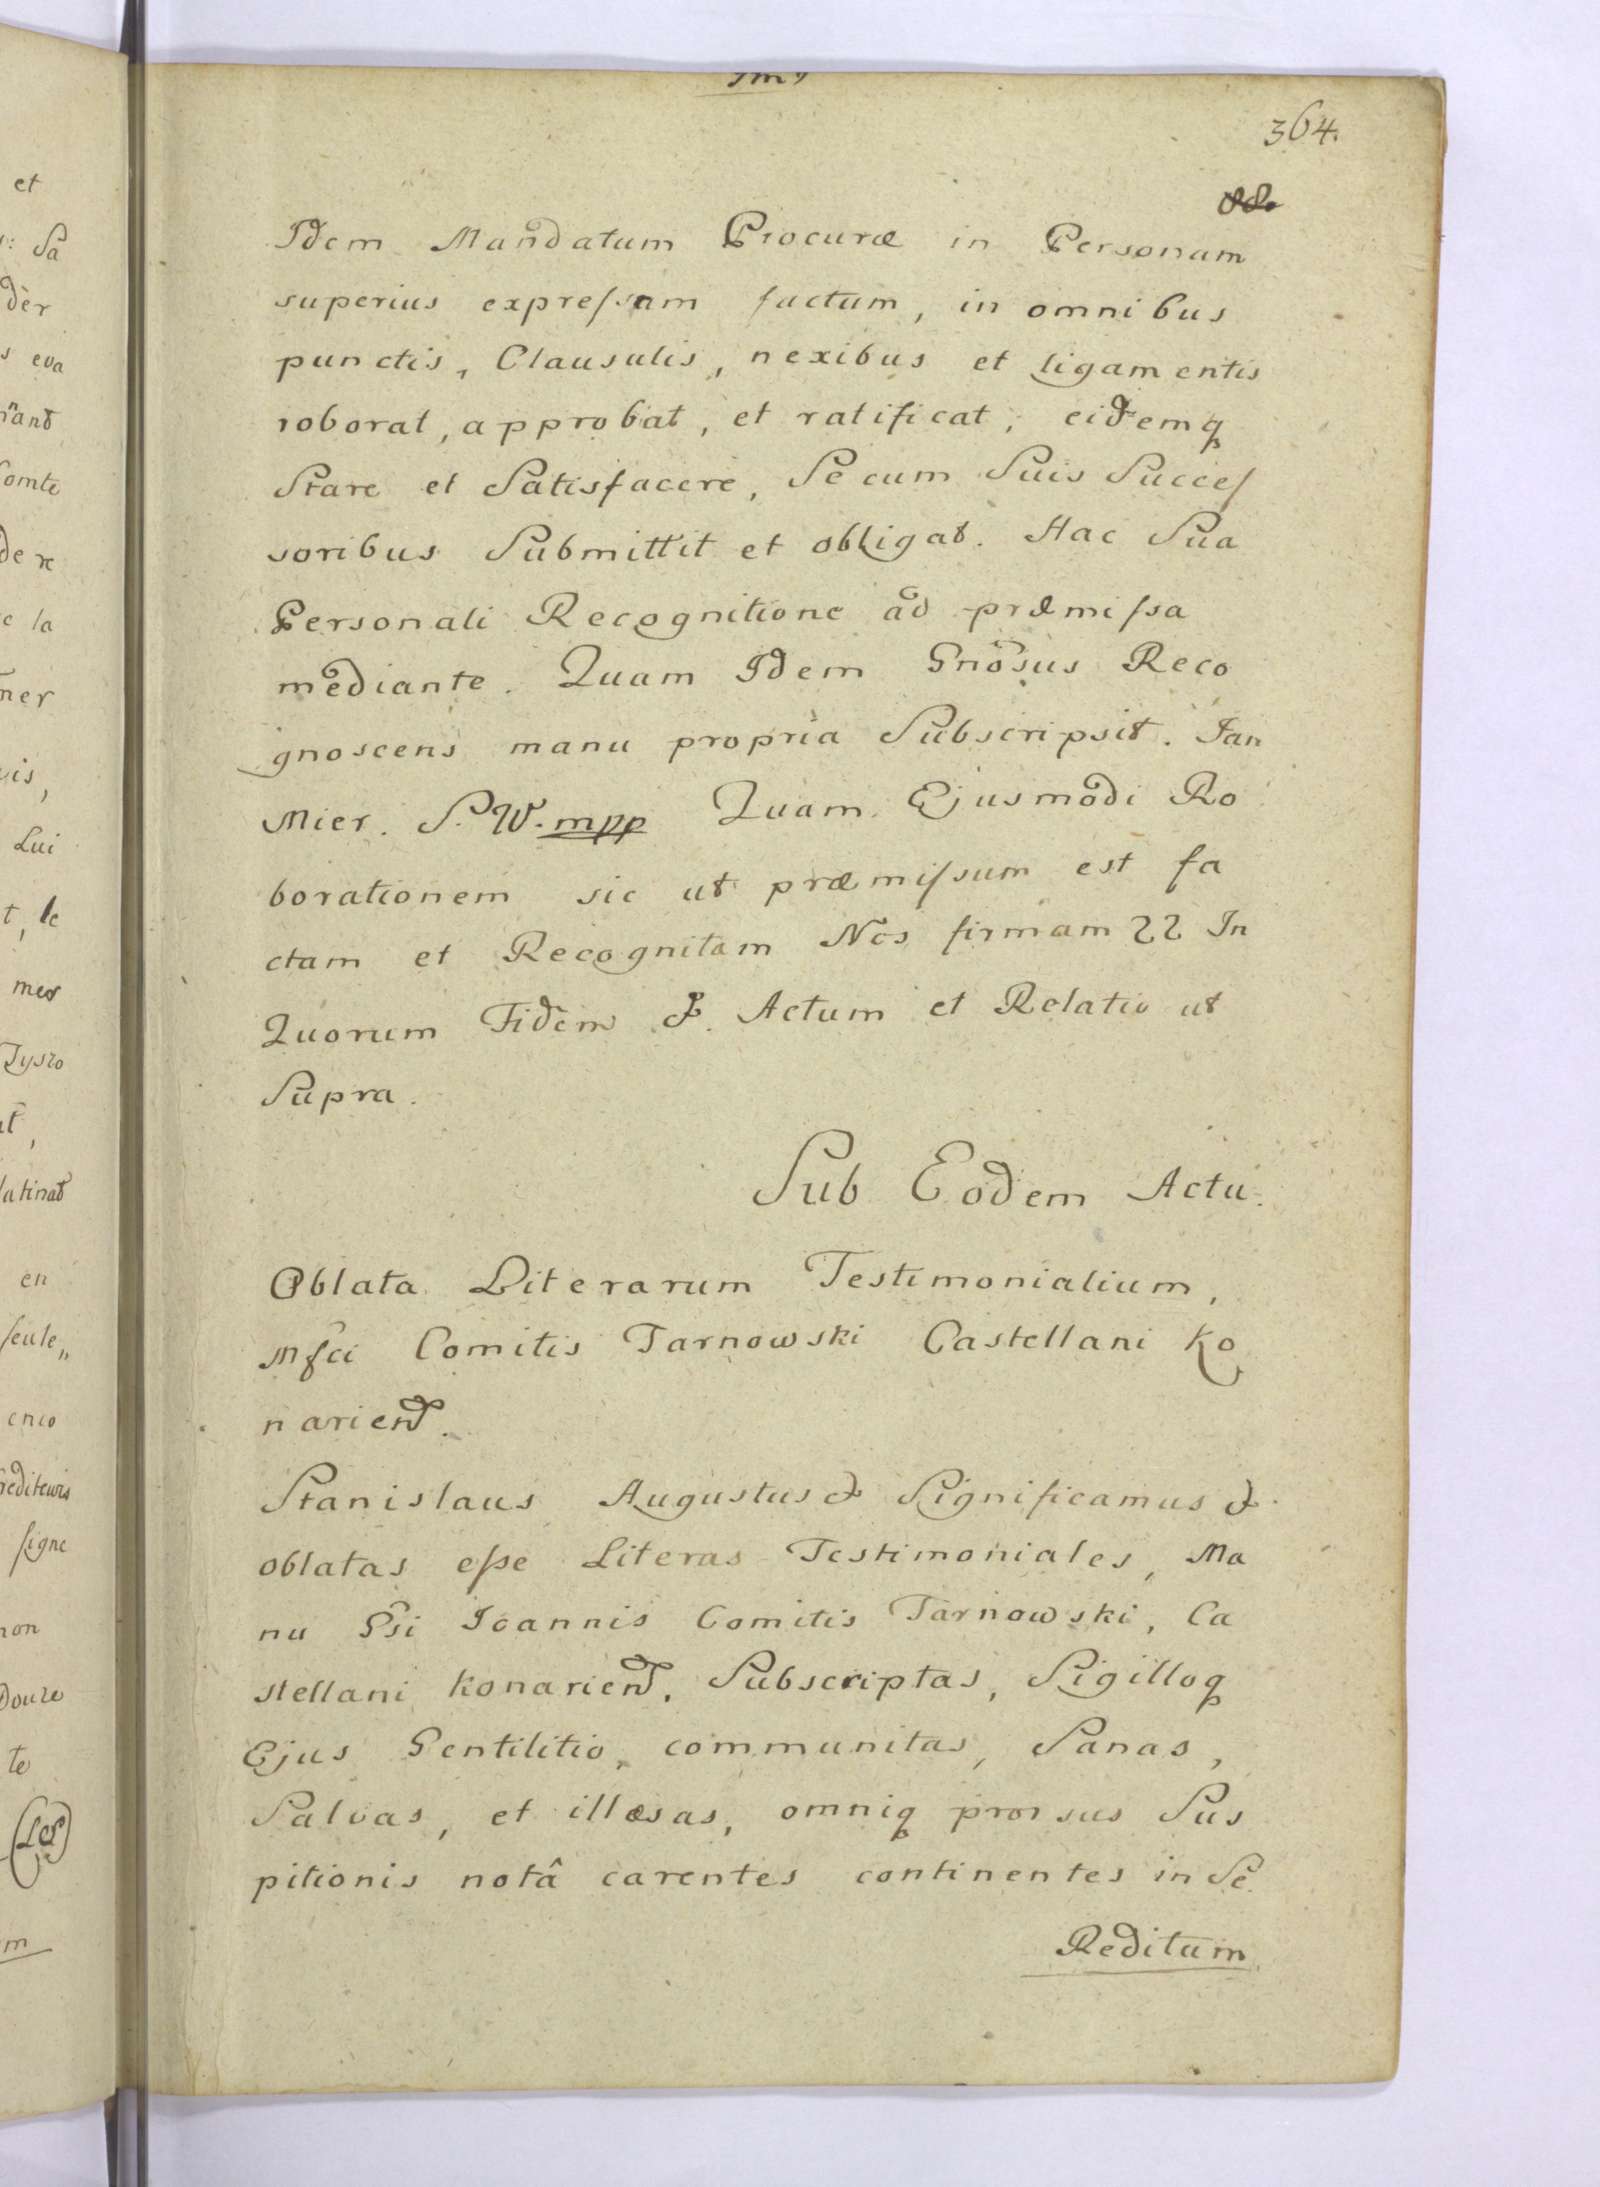 364.
Idem Mandatum Procuræ in Personam
superius expreſsam factum, in omnibus
punctis, Clausulis, nexibus et ligamentis
roborat, approbat, et ratificat, eidemq
Stare et Satisfacere, Se cum Suis Succeſ
soribus Submittit et obligat. Hac Sua
Personali Recognitione ad præmiſsa
mediante. Quam Idem Gnosus Reco
gnoscens manu propria Subscripsit. Jan
Mier. S. W. mpp Quam Ejusmodi Ro
borationem sic ut præmiſsum est fa
ctam et Recognitam Nos firmam In
Quorum Fidem &. Actum et Relatio ut
Supra.
Sub Eodem Actu.
Oblata Literarum Testimonialium,
Mfci Comitis Tarnowski Castellani Ko
narien.
Stanislaus Augustus & Significamus &
oblatas eſse Literas Testimoniales, Ma
nu Gsi Ioannis Comitis Tarnowski, Ca
stellani Konarien. Subscriptas, Sigilloq
Ejus Gentilitio, communitas, Sanas,
Salvas, et illæsas, omniq prorsus Sus
pitionis notâ carentes continentes in Se
Reditum
et
Sa
der
eva
de
la
ner
Lui
t, le
mes
en
ſeule„
ſigne
non
Douze
te
m